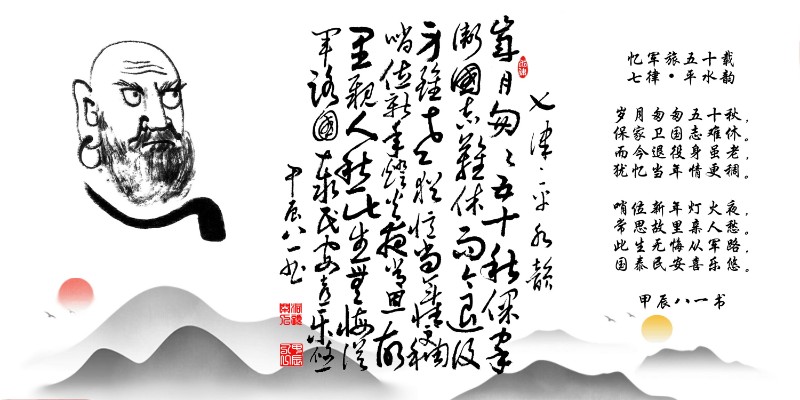 七律·平水韵
歲月匆匆五十秋保家
衛國志難休而今退役
身雖老猶憶當年情更稠
哨位新年燈火夜常思故
里親人愁此生無悔從
軍路國泰民安喜樂悠
甲辰八一书
忆军旅五十载
七律·平水韵
岁月匆匆五十秋，
保家卫国志难休。
而今退役身虽老，
犹忆当年情更稠。
哨位新年灯火夜，
常思故里亲人愁。
此生无悔从军路，
国泰民安喜乐悠。
甲辰八一书